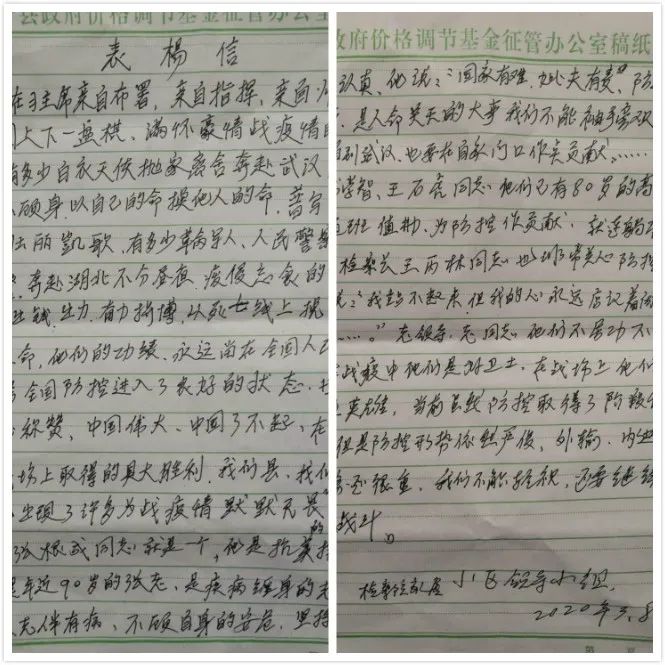 县政府价格调节基金征管办公室
表楊信
在习主席亲自布署,亲自指挥,亲自
上下一盘棋、满怀豪情战疫情
有多少白衣天使抛家离舍奔赴武汉
顾身,以自己的命换他人的命,普写
壮丽凱歌,有多少革命军人、人民警察
奔赴湖北不分昼夜 疲倦忘食的
出钱、出力、奋力拚博,从死亡线上
命,他们的功绩、永远尚在全国人
全国防控进入了良好的状态、
称赞,中国伟大、中国了不起、在
场上取得的具大胜利、我们县、我们
出现了许多为战疫情默默无畏的
张根成同志就是一个,他是抗美
年近90岁的张老,是疾病缠身的
老伴有病、不顾自身的安危,坚持
政府价格调节基金征管办公室稿纸
认真,他说:"国家有难、处夫有责"防
是人命关天的大事我们不能袖手旁观
到武汉,也要在自家门口作贡献、……
学智、王石亮同志他们已有80岁的高
班值勤,为防控作贡献、就连
检察长王丙林同志也非常关心防控
说:"我站不起来,但我的心永远店议着
……。"老领导,老同志他们不居功不
战疫中他们是好卫士,在战场上他们
英雄,当前虽然防控取得了阶段
但是防控形势依然严俊,外输、内
还很重,我们不能轻视,还要继续
战斗。
检察院家属小区领导小组
2020年3.8
第 页